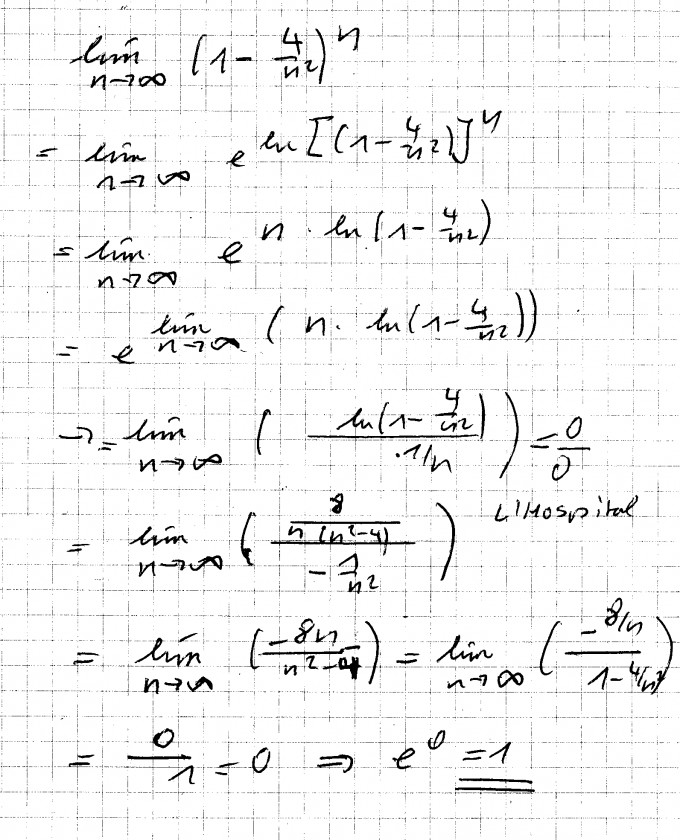 lim n→∞ (1 - 4/n²)^n
= lim n→∞ e^(ln[(1 - 4/n²)]^n)
= lim n→∞ e^(n · ln(1 - 4/n²))
= e^(lim n→∞ (n · ln(1 - 4/n²)))
→ = lim n→∞ ( ln(1 - 4/n²) / 1/n ) = 0/0
L'Hospital
= lim n→∞ ( 8/(n(n²-4)) / -1/n² )
= lim n→∞ ( -8n / n²-4 ) = lim n→∞ ( -8/n / 1-4/n² )
= 0/1 = 0 ⇒ e^0 = 1